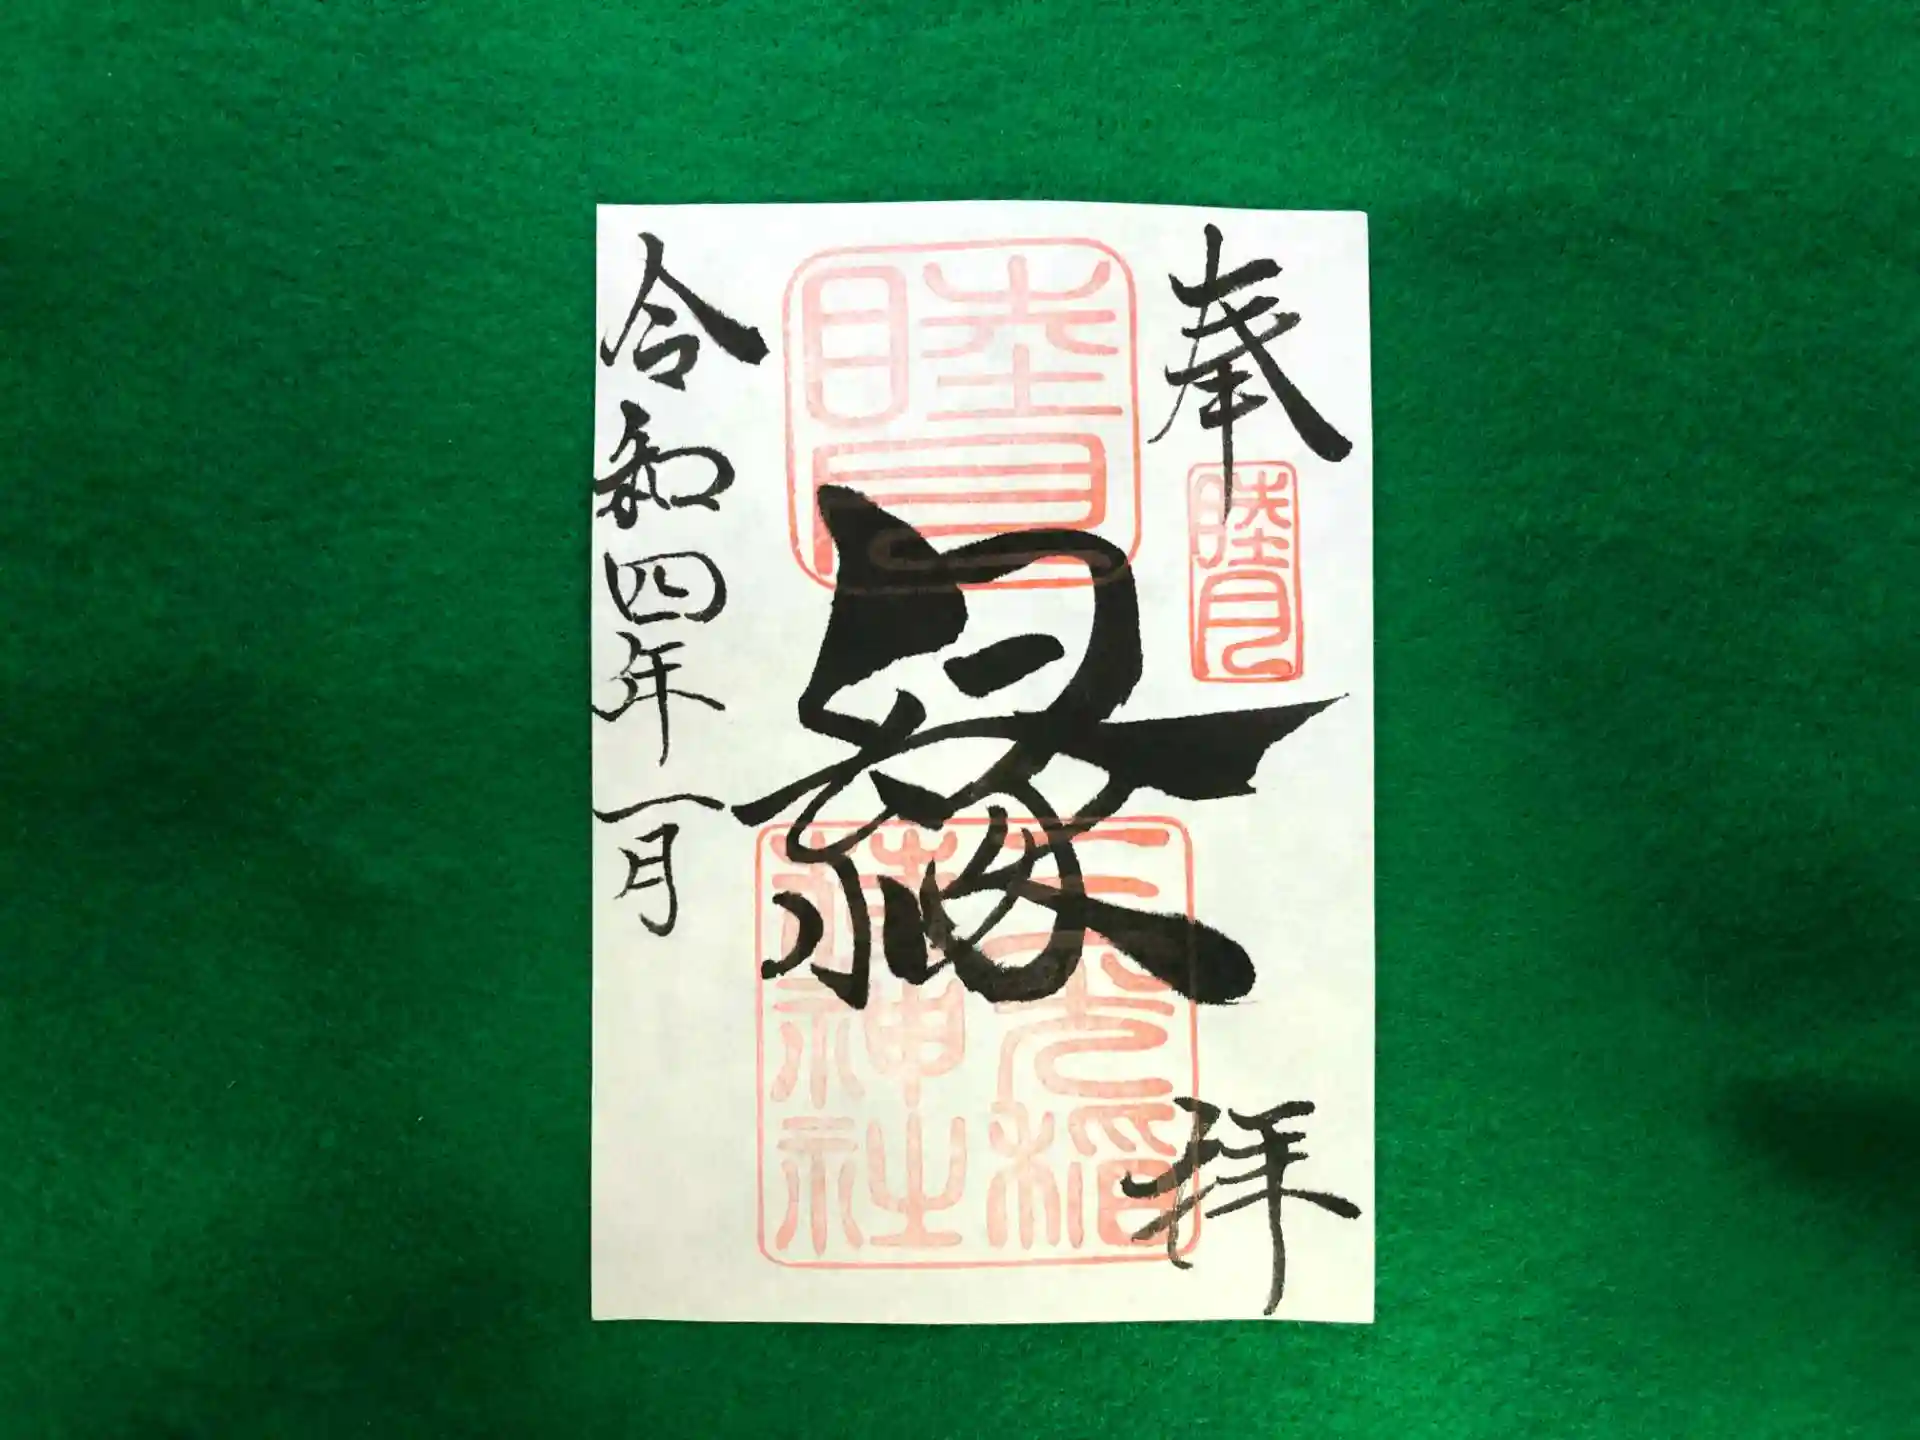 奉拝
睦月
睦月
良縁
三光稲
荷神社
令和四年一月